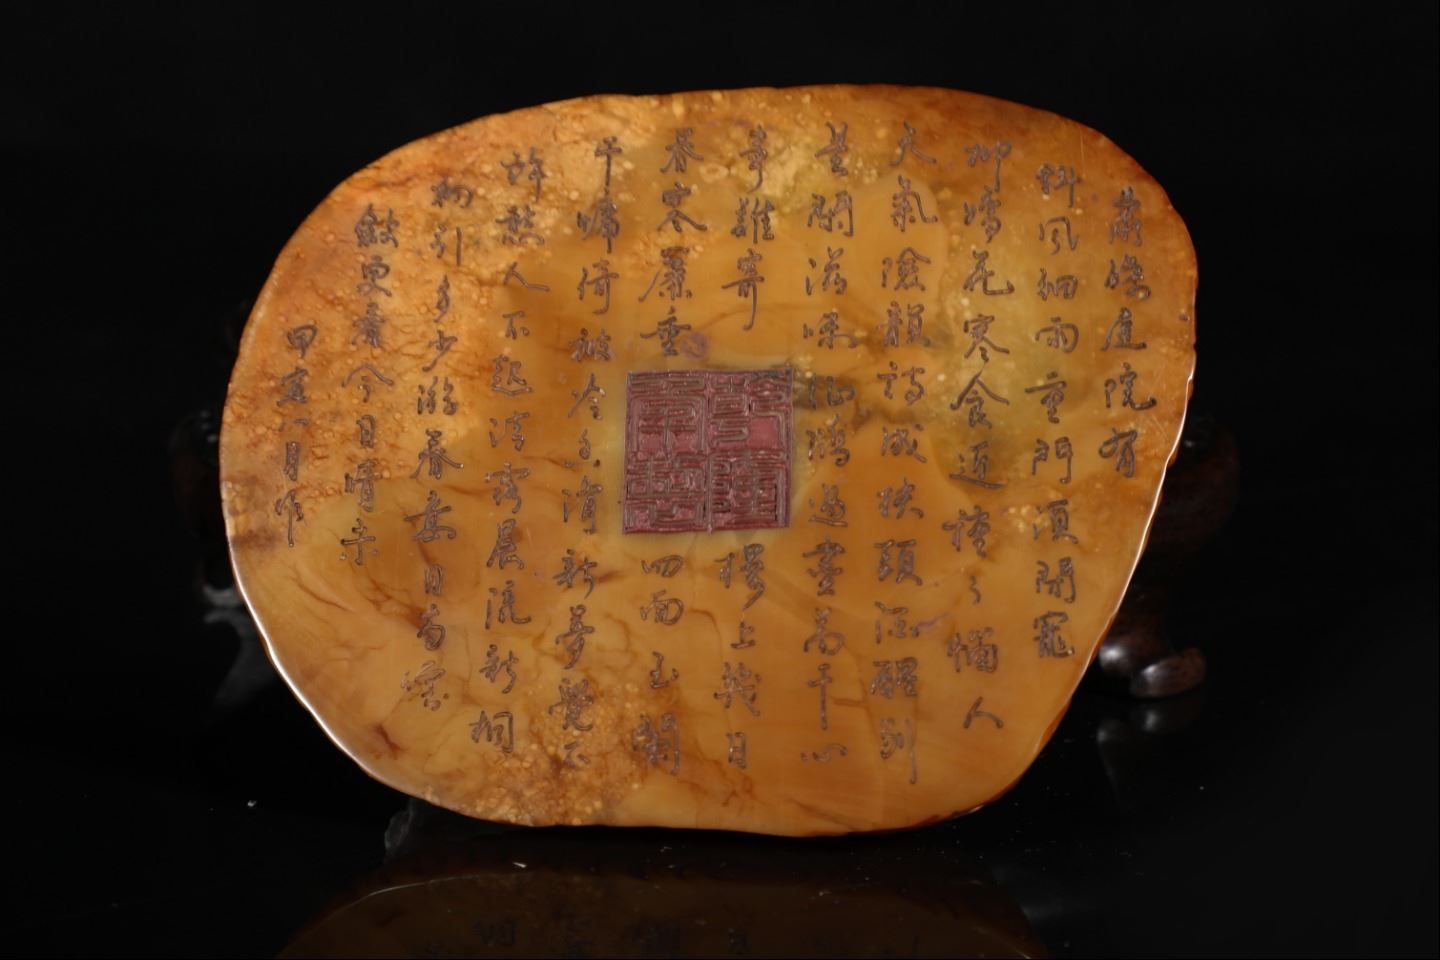 蕭條庭院有
斜风細雨重門須閉寵
柳嬌花寒食近種々惱人
天氣險韻詩成扶頭酒醒別
是閑滋味征鴻過盡萬千心
事難寄樓上幾日
春寒簾垂四面玉闌
干慵倚被冷香消新夢覺不
許愁人不起清露晨流新桐
初引多少游春意日高烟
斂更看今日晴未
甲寅八月作
乾隆